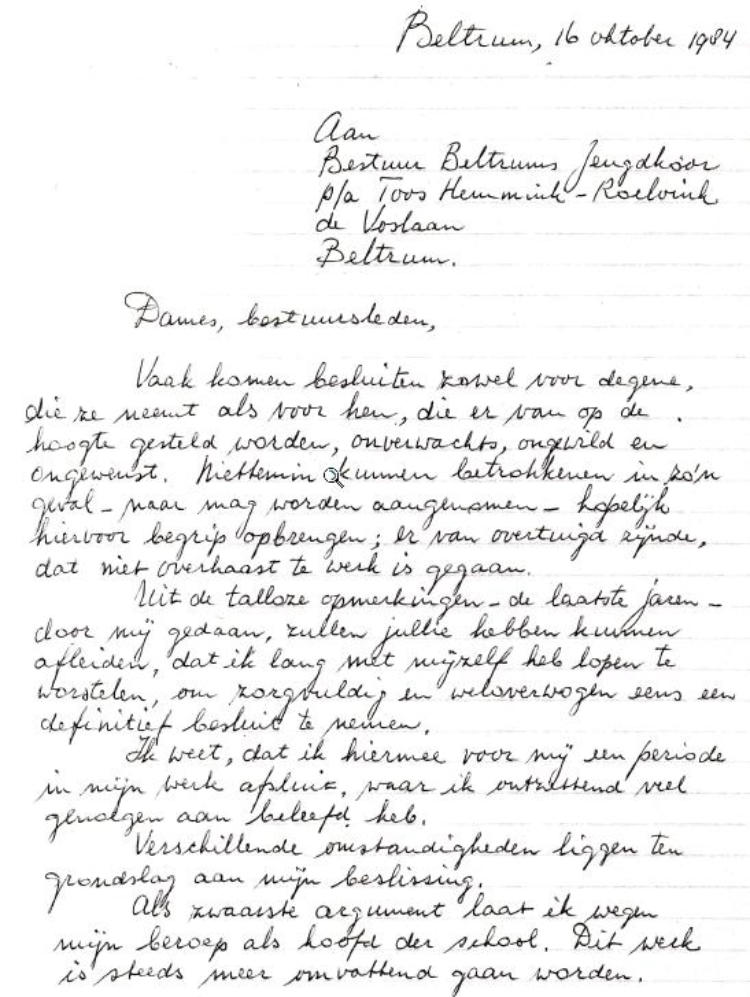 Beltrum, 16 oktober 1984
Aan
Bestuur Beltrums Jeugdkoor
p/a Toos Hemmink-Roelvink
de Voslaan
Beltrum.
Dames, bestuursleden,
Vaak komen besluiten zowel voor degene,
die ze neemt als voor hen, die er van op de
hoogte gesteld worden, onverwachts, ongewild en
ongewenst. Niettemin kunnen betrokkenen in zo'n
geval - naar mag worden aangenomen - hopelijk
hiervoor begrip opbrengen; er van overtuigd zijnde,
dat niet overhaast te werk is gegaan.
Uit de talloze opmerkingen - de laatste jaren -
door mij gedaan, zullen jullie hebben kunnen
afleiden, dat ik lang met mijzelf heb lopen te
worstelen, om zorgvuldig en weloverwogen eens een
definitief besluit te nemen.
Ik weet, dat ik hiermee voor mij een periode
in mijn werk afsluit, waar ik ontzettend veel
genoegen aan beleefd heb.
Verschillende omstandigheden liggen ten
grondslag aan mijn beslissing.
Als zwaarste argument laat ik wegen
mijn beroep als hoofd der school. Dit werk
is steeds meer omvattend gaan worden.